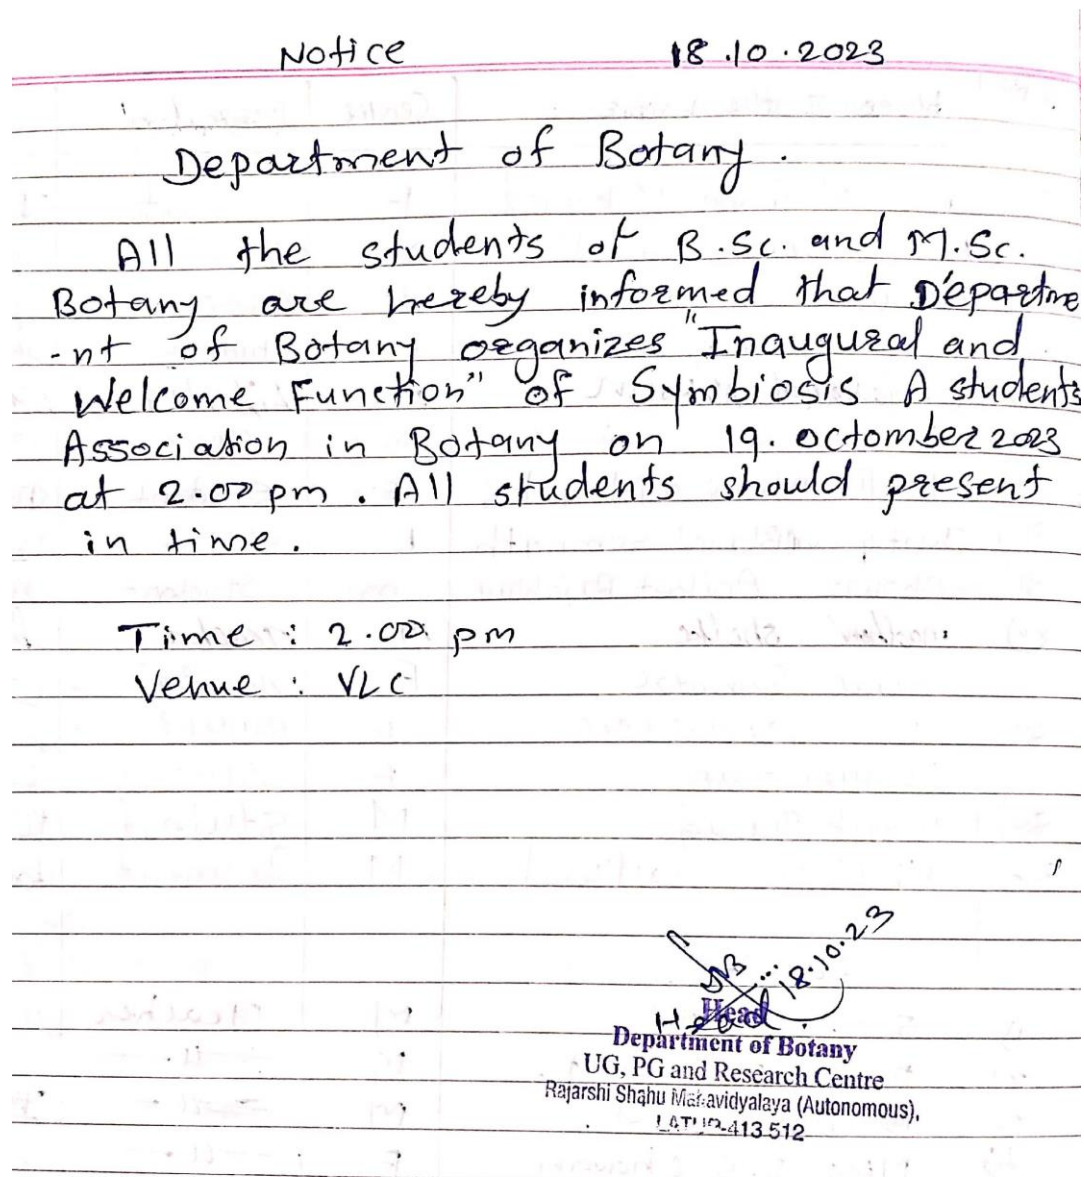 Notice 18.10.2023
Department of Botany.
All the students of B.Sc. and M.Sc.
Botany are hereby informed that Departme
-nt of Botany organizes "Inaugural and
Welcome Function" of Symbiosis A students
Association in Botany on 19. octomber 2023
at 2.00 pm. All students should present
in time.
Time : 2.00 pm
Venue : VLC
18.10.23
Head
Head
Department of Botany
UG, PG and Research Centre
Rajarshi Shahu Mahavidyalaya (Autonomous),
LATUR-413 512